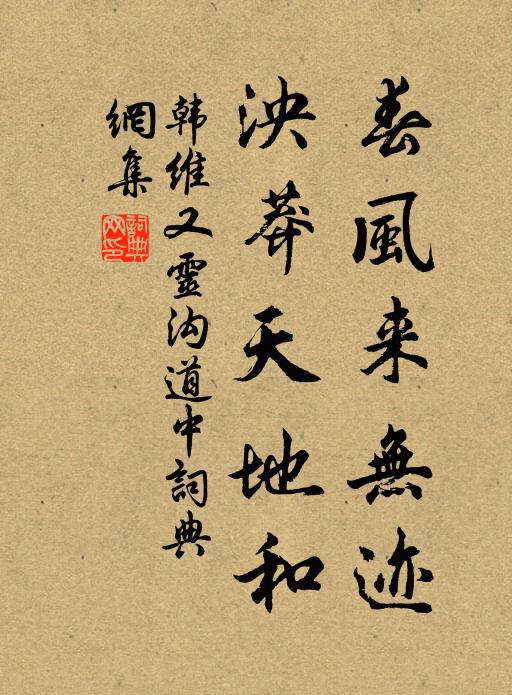 春風来無迹
泱莽天地和
韩維又靈沟道中詞典
網集
詞典
网印